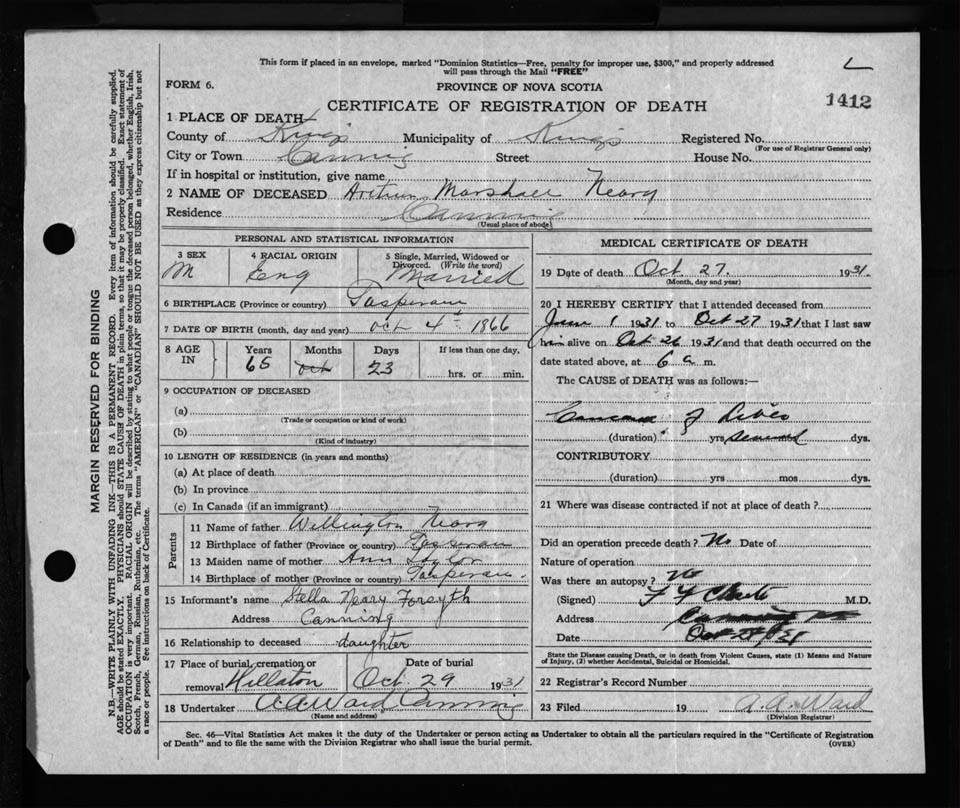 This form if placed in an envelope, marked "Dominion Statistics—Free, penalty for improper use, $300," and properly addressed
will pass through the Mail "FREE"
FORM 6.
PROVINCE OF NOVA SCOTIA
1412
CERTIFICATE OF REGISTRATION OF DEATH
1 PLACE OF DEATH
County of Kings Municipality of Kings Registered No.
(For use of Registrar General only)
City or Town Canning Street House No.
If in hospital or institution, give name
2 NAME OF DECEASED Arthur Marshall Neary
Residence Canning
(Usual place of abode)
PERSONAL AND STATISTICAL INFORMATION
3 SEX M
4 RACIAL ORIGIN Eng
5 Single, Married, Widowed or Divorced. (Write the word) Married
6 BIRTHPLACE (Province or country) Gasperau
7 DATE OF BIRTH (month, day and year) Oct 4th 1866
8 AGE IN Years 65 Months Oct Days 23 If less than one day, hrs. or min.
9 OCCUPATION OF DECEASED
(a)
(Trade or occupation or kind of work)
(b)
(Kind of industry)
10 LENGTH OF RESIDENCE (in years and months)
(a) At place of death
(b) In province
(c) In Canada (if an immigrant)
Parents
11 Name of father Wellington Neary
12 Birthplace of father (Province or country) Gasperau
13 Maiden name of mother Ann
14 Birthplace of mother (Province or country) Gasperau
15 Informant's name Stella Neary Forsyth
Address Canning
16 Relationship to deceased daughter
17 Place of burial, cremation or removal Hillaton
Date of burial Oct 29 1931
18 Undertaker A.A. Ward Canning
(Name and address)
MEDICAL CERTIFICATE OF DEATH
19 Date of death Oct 27. 1931.
(Month, day and year)
20 I HEREBY CERTIFY that I attended deceased from
June 1 1931 to Oct 27 1931 that I last saw
him alive on Oct 26 1931 and that death occurred on the
date stated above, at 6 a m.
The CAUSE of DEATH was as follows:—
Cancer of Liver
(duration) yrs. several dys.
CONTRIBUTORY
(duration) yrs mos dys.
21 Where was disease contracted if not at place of death?
Did an operation precede death? No Date of
Nature of operation
Was there an autopsy? No
(Signed) M.D.
Address Canning NS
Date Oct 31
State the Disease causing Death, or in death from Violent Causes, state (1) Means and Nature
of Injury, (2) whether Accidental, Suicidal or Homicidal.
22 Registrar's Record Number
23 Filed 19 A. A. Ward
(Division Registrar)
Sec. 46—Vital Statistics Act makes it the duty of the Undertaker or person acting as Undertaker to obtain all the particulars required in the "Certificate of Registration
of Death" and to file the same with the Division Registrar who shall issue the burial permit.
(OVER)
MARGIN RESERVED FOR BINDING
N.B.—WRITE PLAINLY WITH UNFADING INK—THIS IS A PERMANENT RECORD. Every item of information should be carefully supplied.
AGE should be stated EXACTLY. PHYSICIANS should STATE CAUSE OF DEATH in plain terms, so that it may be properly classified. Exact statement of
OCCUPATION is very important. RACIAL ORIGIN will be described by stating to what people or tongue the deceased person belonged, whether English, Irish,
Scotch, French, German, Russian, Ruthenian, etc. The terms "AMERICAN" or "CANADIAN" SHOULD NOT BE USED as they express citizenship but not
a race or people. See instructions on back of Certificate.